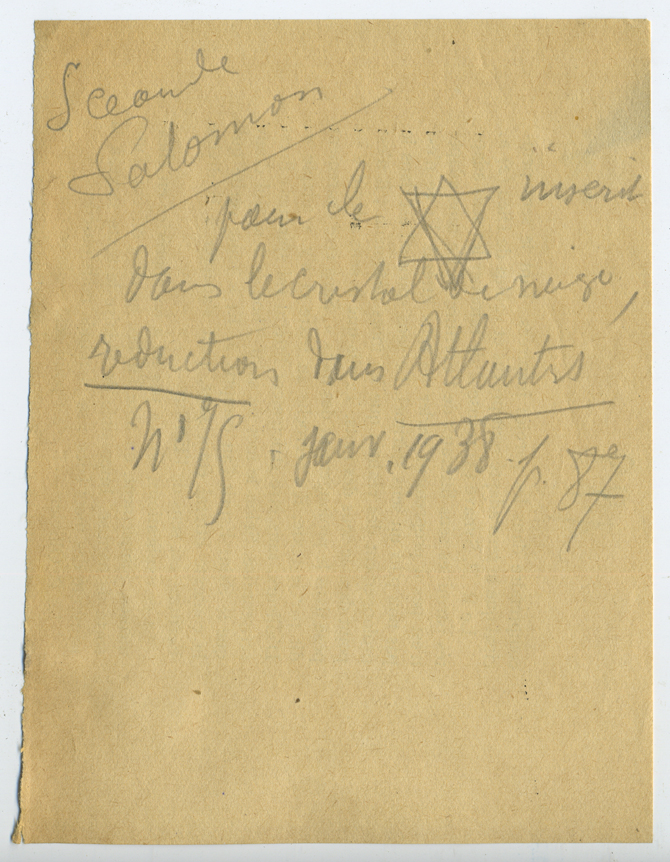 Sceau de
Salomon
pour le ✡ inscrit
dans le cristal de neige,
réduction dans Atlantis
N° 75. janv. 1938. p. 87